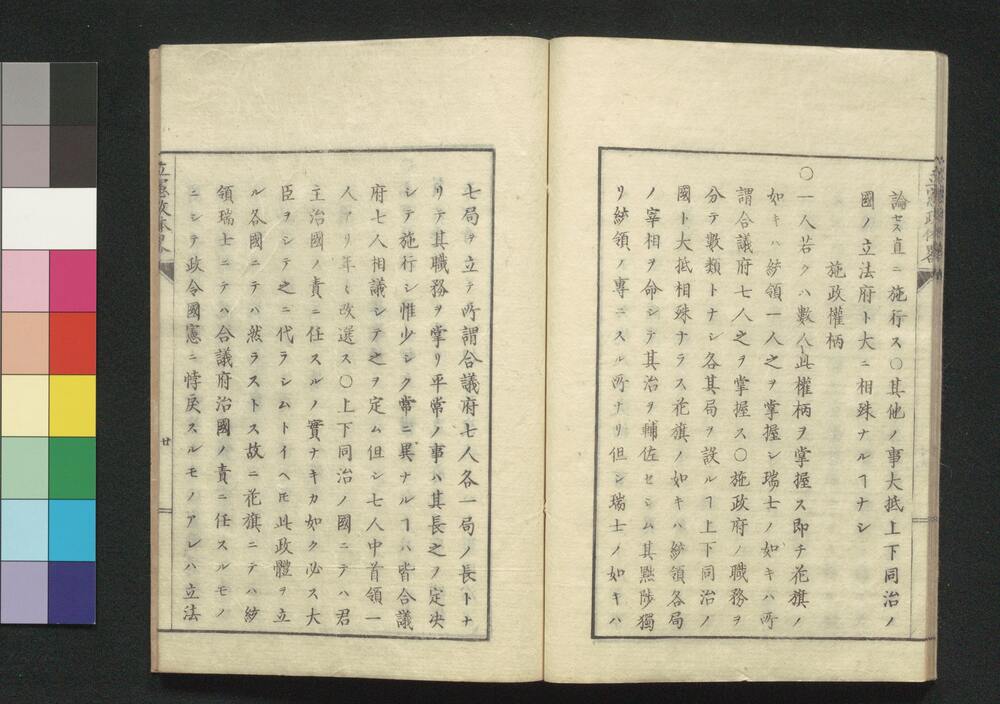 論セス直ニ施行ス〇其他ノ事大抵上下同治ノ
國ノ立法府ト大ニ相殊ナルヿナシ
施政權柄
〇一人若クハ數人此權柄ヲ掌握ス即チ花旗ノ
如キハ統領一人之ヲ掌握シ瑞士ノ如キハ所
謂合議府七人之ヲ掌握ス〇施政府ノ職務ヲ
分テ數類トナシ各其局ヲ設ルヿ上下同治ノ
國ト大抵相殊ナラス花旗ノ如キハ統領各局
ノ宰相ヲ命シテ其治ヲ輔佐セシム其黜陟獨
リ統領ノ專ニスル所ナリ但シ瑞士ノ如キハ
七局ヲ立テ所謂合議府七人各一局ノ長トナ
リテ其職務ヲ掌リ平常ノ事ハ其長之ヲ定决
シテ施行シ惟少シク常ニ異ナルヿハ皆合議
府七人相議シテ之ヲ定ム但シ七人中首領一
人アリ年々改選ス〇上下同治ノ國ニテハ君
主治國ノ責ニ任スルノ實ナキカ如ク必ス大
臣ヲシテ之ニ代ラシムトイヘ𪜈此政體ヲ立
ル各國ニテハ然ラストス故ニ花旗ニテハ統
領瑞士ニテハ合議府治國ノ責ニ任スルモノ
ニシテ政令國憲ニ悖戾スルモノアレハ立法
廿